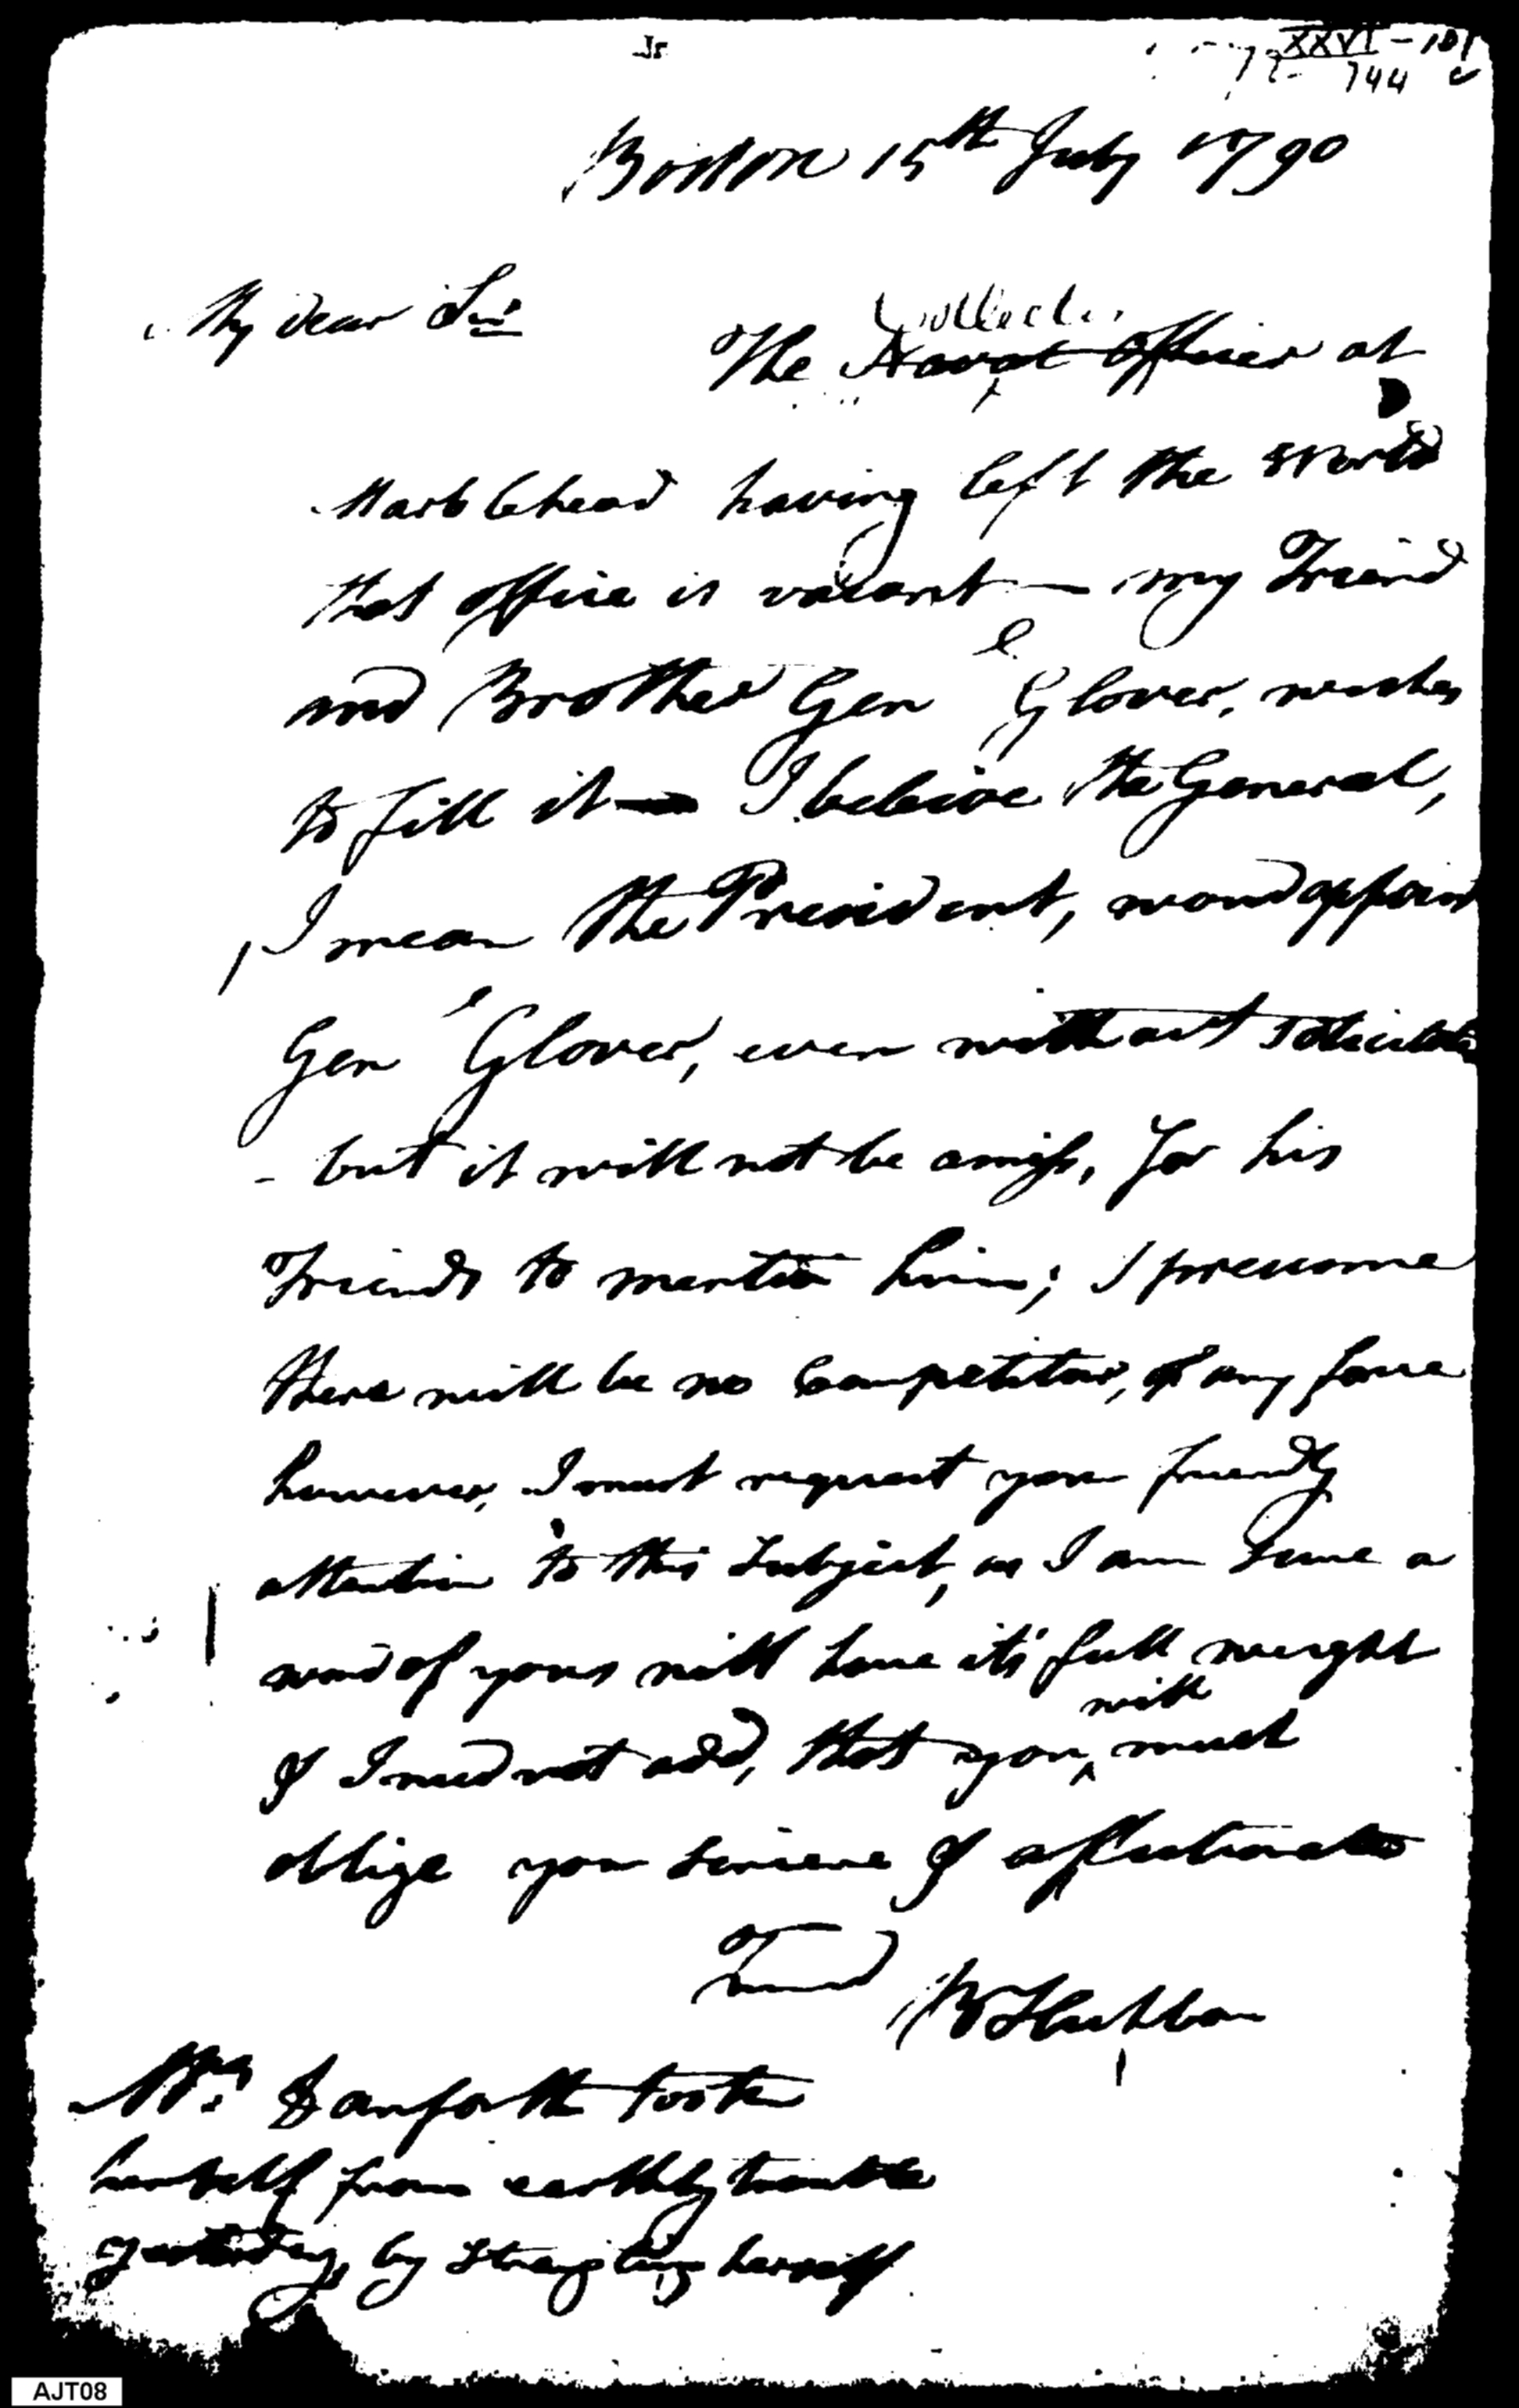 XXVI - 101
744
Boston 15th July 1790
My dear Sir
Collector
The Naval Officer at
Marblehead having left the World
that office is vacant — my Friend
and Brother Genl Glover, wishes
to fill it — I beleive the General,
I mean the President, woud appoint
Genl Glover, even without solicitation
- but it will not be amiss, for his
Friends to mention him; I presume
there will be no Competitor, of any force
however, I must request your friendly
attention to this Subject, as I am sure a
word of yours will have it's full weight
& I need not add, that you
will
much
oblige your sincere & affectionate
Friend
Mrs Danforth took
herself from earthly trouble
yesterday, by herself
AJT08